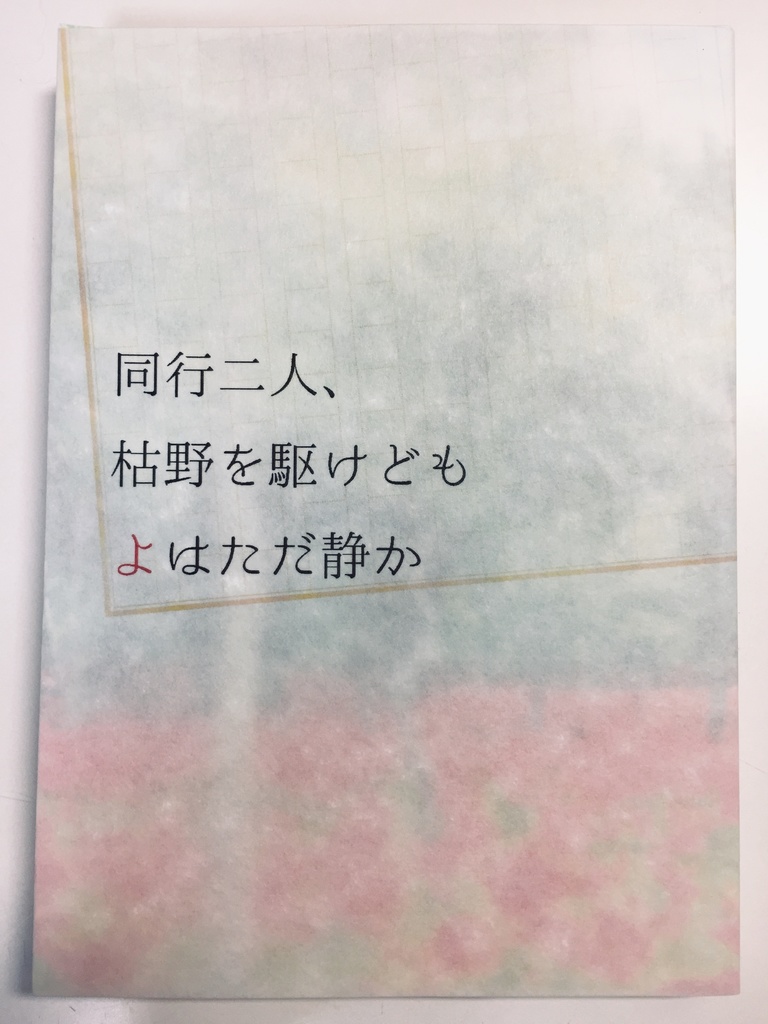 同行二人、
枯野を駆けども
よはただ静か